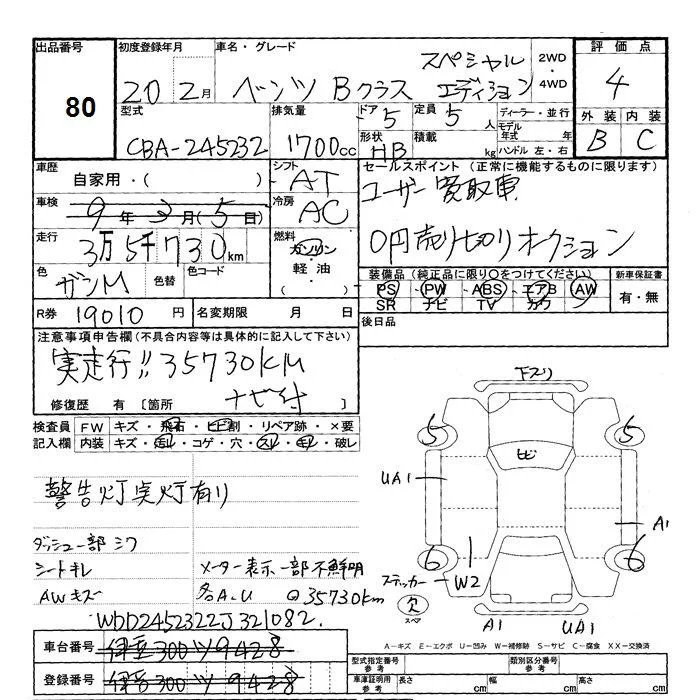 出品番号 初度登録年月 車名・グレード 評価点
80 20 2月 ベンツ Bクラス スペシャル エディション 2WD・4WD 4
型式 排気量 ドア 5 定員 5人 ディーラー・並行 外装 内装
CBA-245232 1700cc 形状 HB 積載 kg モデル年式 年 ハンドル 左・右 B C
車歴 自家用・( ) シフト AT セールスポイント(正常に機能するものに限ります)
車検 9年3月(5日) 冷房 AC ユーザー買取車
走行 3万5千730km 燃料 ガソリン・軽油・( ) 0円売り切りオークション
色 ガンM 色替 色コード 装備品(純正品に限り○をつけてください) 新車保証書
PS PW ABS エアB AW 有・無
SR ナビ TV カワ
R券 19010円 名変期限 月 日 後日品
注意事項申告欄(不具合内容等は具体的に記入して下さい)
実走行!! 35730KM
ナビ付
修復歴 有 [箇所 ]
検査員記入欄 FW キズ・飛石・ヒビ割・リペア跡・×要
内装 キズ・汚レ・コゲ・穴・スレ・モレ・破レ
警告灯実灯有り
ダッシュ一部シワ
シートキレ メーター表示一部不鮮明
AWキズ 各A.U 35730km
WDD2452322J321082.
下ズリ
5 5
ヒビ
UA1
A1
6 6
ステッカー W2
欠
スペア
A1 UA1
A…キズ E…エクボ U…凹み W…補修跡 S…サビ C…腐食 XX…交換済
車台番号 伊豆300ツ9428
登録番号 伊豆300ツ9428
型式指定番号 参考 類別区分番号 参考
車庫証明用 参考 長さ cm 幅 cm 高さ cm